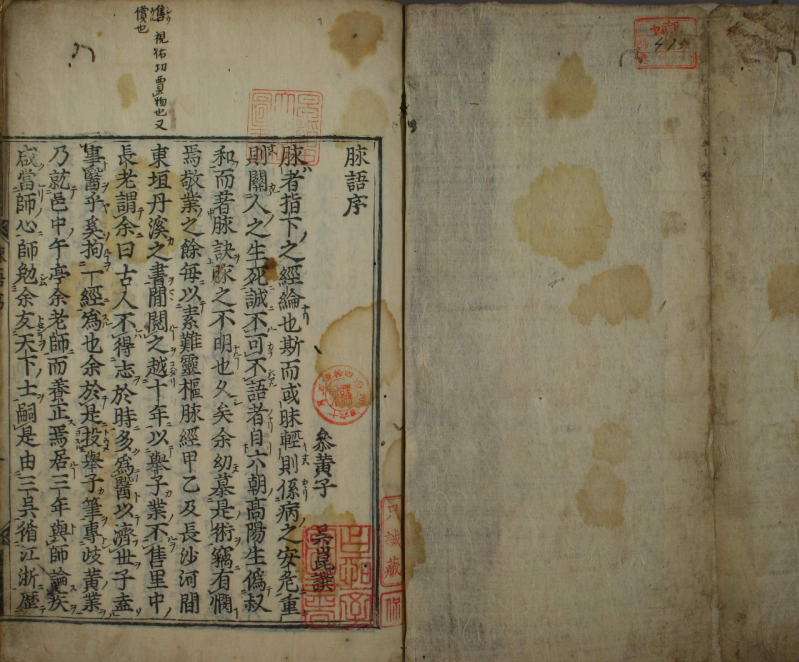 脉語序
參黄子 吳崑譔
脉者指下之經綸也斯而或昧輕則係病之安危重
則關人之生死誠不可不語者自六朝高陽生僞叔
和而著脉訣脉之不明也久矣余幼慕是術竊有憫
焉敬業之餘每以素難靈樞脉經甲乙及長沙河間
東垣丹溪之書閒閱之越十年以舉子業不售里中
長老謂余曰古人不得志於時多爲醫以濟世子盍
事醫乎奚拘一經爲也余於是投舉子筆專歧黄業
乃就邑中午亭余老師而養正焉居三年與師論疾
咸當師心師勉余友天下士嗣是由三吳循江浙歷
售 視祐切賣物也又
償也